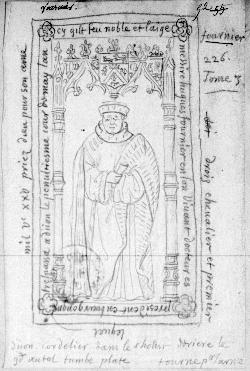 cy gist feu noble et saige
messire hugues fournier en son vivant docteur es
droiz chevalier et premier
president en bourgongne
lequel
trepassa a dijon le penultiesme jour de may lan
mil Vc XXV priez dieu pour son ame
fournier
226.
Tome 7.
dijon cordelier dans le choeur derriere le
gd autel tumbe plate